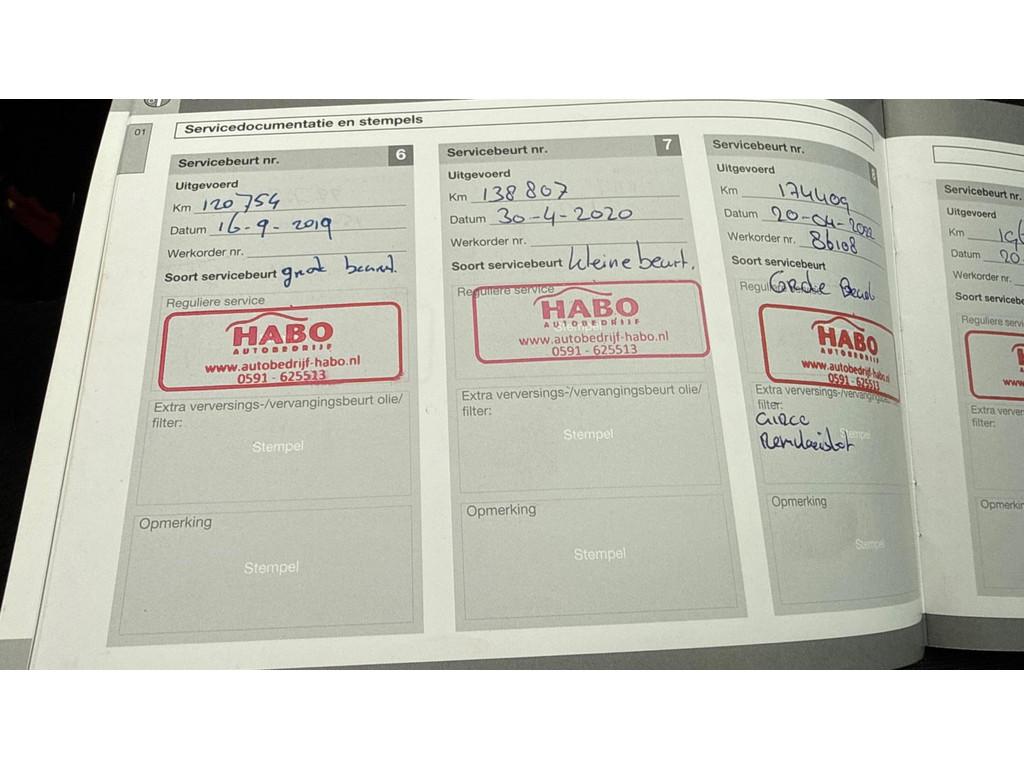 01
Servicedocumentatie en stempels
Servicebeurt nr. 6
Uitgevoerd
Km 120754
Datum 16-9-2019
Werkorder nr.
Soort servicebeurt grote beurt.
Reguliere service
HABO
AUTOBEDRIJF
www.autobedrijf-habo.nl
0591 - 625513
Extra verversings-/vervangingsbeurt olie/
filter:
Stempel
Opmerking
Stempel
Servicebeurt nr. 7
Uitgevoerd
Km 138807
Datum 30-4-2020
Werkorder nr.
Soort servicebeurt kleine beurt.
Reguliere service
Stempel
HABO
AUTOBEDRIJF
www.autobedrijf-habo.nl
0591 - 625513
Extra verversings-/vervangingsbeurt olie/
filter:
Stempel
Opmerking
Stempel
Servicebeurt nr. 8
Uitgevoerd
Km 174409
Datum 20-04-2022
Werkorder nr. 86108
Soort servicebeurt
Grote Beurt
HABO
AUTOBEDRIJF
www.autobedrijf-habo.nl
0591 - 625513
Extra verversings-/vervangingsbeurt
filter:
Airco
Remvloeistof
Stempel
Opmerking
Stempel
Servicebeurt nr.
Uitgevoerd
Km
Datum 20
Werkorder nr.
Soort servicebe
Reguliere servi
Extra verver
filter:
Opmerkin